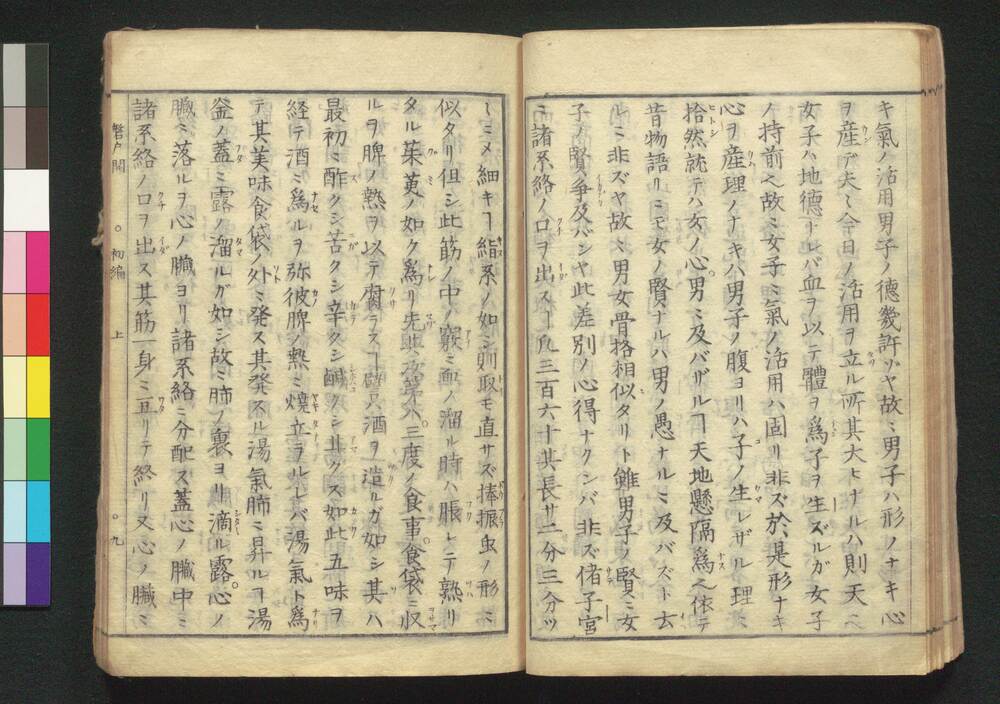 キ氣ノ活用男子ノ德幾許ゾヤ故ニ男子ハ形ノナキ心
ヲ産デ夫々今日ノ活用ヲ立ル所其大ヒナルハ則天ヘ
女子ハ地德ナレバ血ヲ以テ體ヲ爲子ヲ生ズルガ女子
ノ持前ヘ故ニ女子ニ氣ノ活用ハ固リ非ズ於是形ナキ
心ヲ産理ノナキハ男子ノ腹ヨリハ子ノ生レザル理ニ
拾然就テハ女ノ心男ニ及バザルヿ天地懸隔爲ヘ依テ
昔物語リニモ女ノ賢ナルハ男ノ愚ナルニ及バズト去
ルニ非ズヤ故ニ男女骨格相似タリト雖男子ノ賢ニ女
子ノ賢争及バンヤ此差別ノ心得ナクンバ非ズ偖子宮
ニ諸系絡ノ口ヲ出スヿ凡三百六十其長サ二分三分ツ
ヽニメ細キヿ絹系ノ如シ則取モ直サズ捧振虫ノ形ニ
似タリ但シ此筋ノ中ノ竅ニ血ノ溜ル時ハ脹レテ熟リ
タル茱萸ノ如ク爲リ先 三度ノ食事食袋ニ収
ルヲ脾ノ熱ヲ以テ腐ラスヿ 酒ヲ造ルガ如シ其ハ
最初ニ酢クシ苦クシ辛クシ鹹クシ甘クス如此五味ヲ
経テ酒ニ爲ルヲ弥彼脾ノ熱ニ燒立ヲルレバ湯氣ト爲
テ其美味食袋ノ外ニ発ス其発スル湯氣肺ニ昇ルヿ湯
釜ノ蓋ニ露ノ溜ルガ如シ故ニ肺ノ裏ヨリ滴ル露心ノ
臓ニ落ルヲ心ノ臓ヨリ諸系絡ニ分配ス蓋心ノ臓中ニ
諸系絡ノ口ヲ出ス其筋一身ニ亘リテ終リ又心ノ臓ニ
磐戸開 ○初編 上 ○九